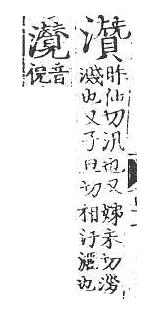 灒
昨仙切汎也又姊末切
濺也又子旦切相汙灑也
音